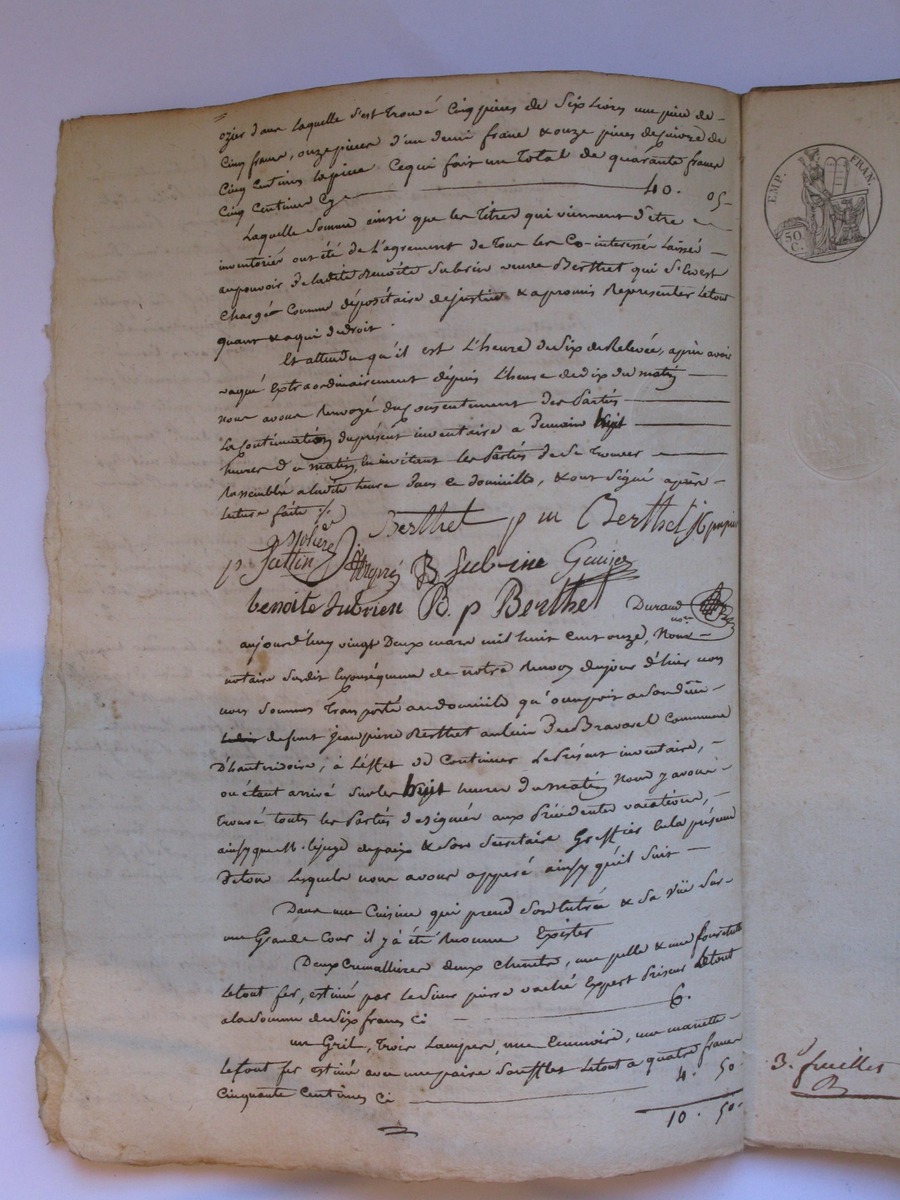 ozier dans laquelle s'est trouvé cinq pieces de six livres une piece de
cinq francs, onze pieces d'un demi franc & onze pieces de cuivre de
cinq centimes la piece ce qui fait un total de quarante francs
cinq centimes Cy 40. 05
Laquelle somme ainsi que les titres qui viennent d'être
inventoriés ont été de l'agrement de tous les co-interessés laissé
au pouvoir de ladite Benoite Subrin veuve Berthet qui s'en est
chargée comme dépositaire de justice & a promis representer le tout
quant & a qui de droit.
Et attendu qu'il est l'heure de six de relevée, après avoir
vaqué extraordinairement dépuis l'heure de dix du matin
nous avons renvoyé du consentement des parties
la continuation du présent inventaire a demain huit
heures du matin, en invitant les parties de se trouver
rassemblé a ladite heure dans ce domicille, & ont signé après
lecture faite ./.
Berthet p m Berthet
B Subrine
benoite subrien B. p Berthet Durand
nore
aujourd'huy vingt deux mars mil huit cent onze, Nous
notaire susdit en conséquence de notre renvoy du jour d'hier nous
nous sommes transporté au domicile qu'occupoit a son décès
defunt jean pierre Berthet au lieu de Bravarel commune
d'hauterivoire, à l'éffet de continuer le présent inventaire,
ou étant arrivé sur les huit heures du matin nous y avons
trouvé toutes les parties designées aux précédentes vacations,
ainsy que M. le juge de paix & son secretaire Greffier en la présence
de tous lesquels nous avons opperé ainsy qu'il suit
Dans une cuisine qui prend son entrée & sa vüe sur
une Grande cour il y a été reconnu exister
Deux cremallieres deux chenets, une pelle & une fourchette
le tout fer, estimé par le sieur pierre vaché expert priseur le tout
a la somme de six francs ci 6.
un Gril, trois lampes, une ecumoire, une
le tout fer estimé avec une paire soufflet le tout a quatre francs
cinquante centimes ci 4. 50.
10. 50.
EMP. FRAN.
50
C.
3e feuillet